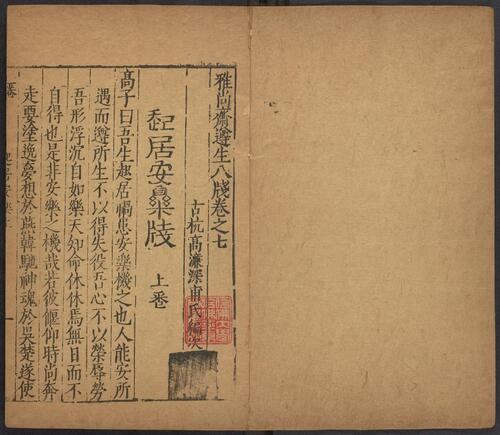 雅尚齋遵生八牋卷之七
古杭高濂深甫氏編次
起居安樂牋 上卷
高子曰吾生起居禍患安樂機之也人能安所
遇而遵所生不以得失役吾心不以榮辱勞
吾形浮沉自如樂天知命休休焉無日而不
自得也是非安樂之機哉若彼偃仰時尚奔
走要塗逸夢想於燕韓馳神魂於吳楚遂使